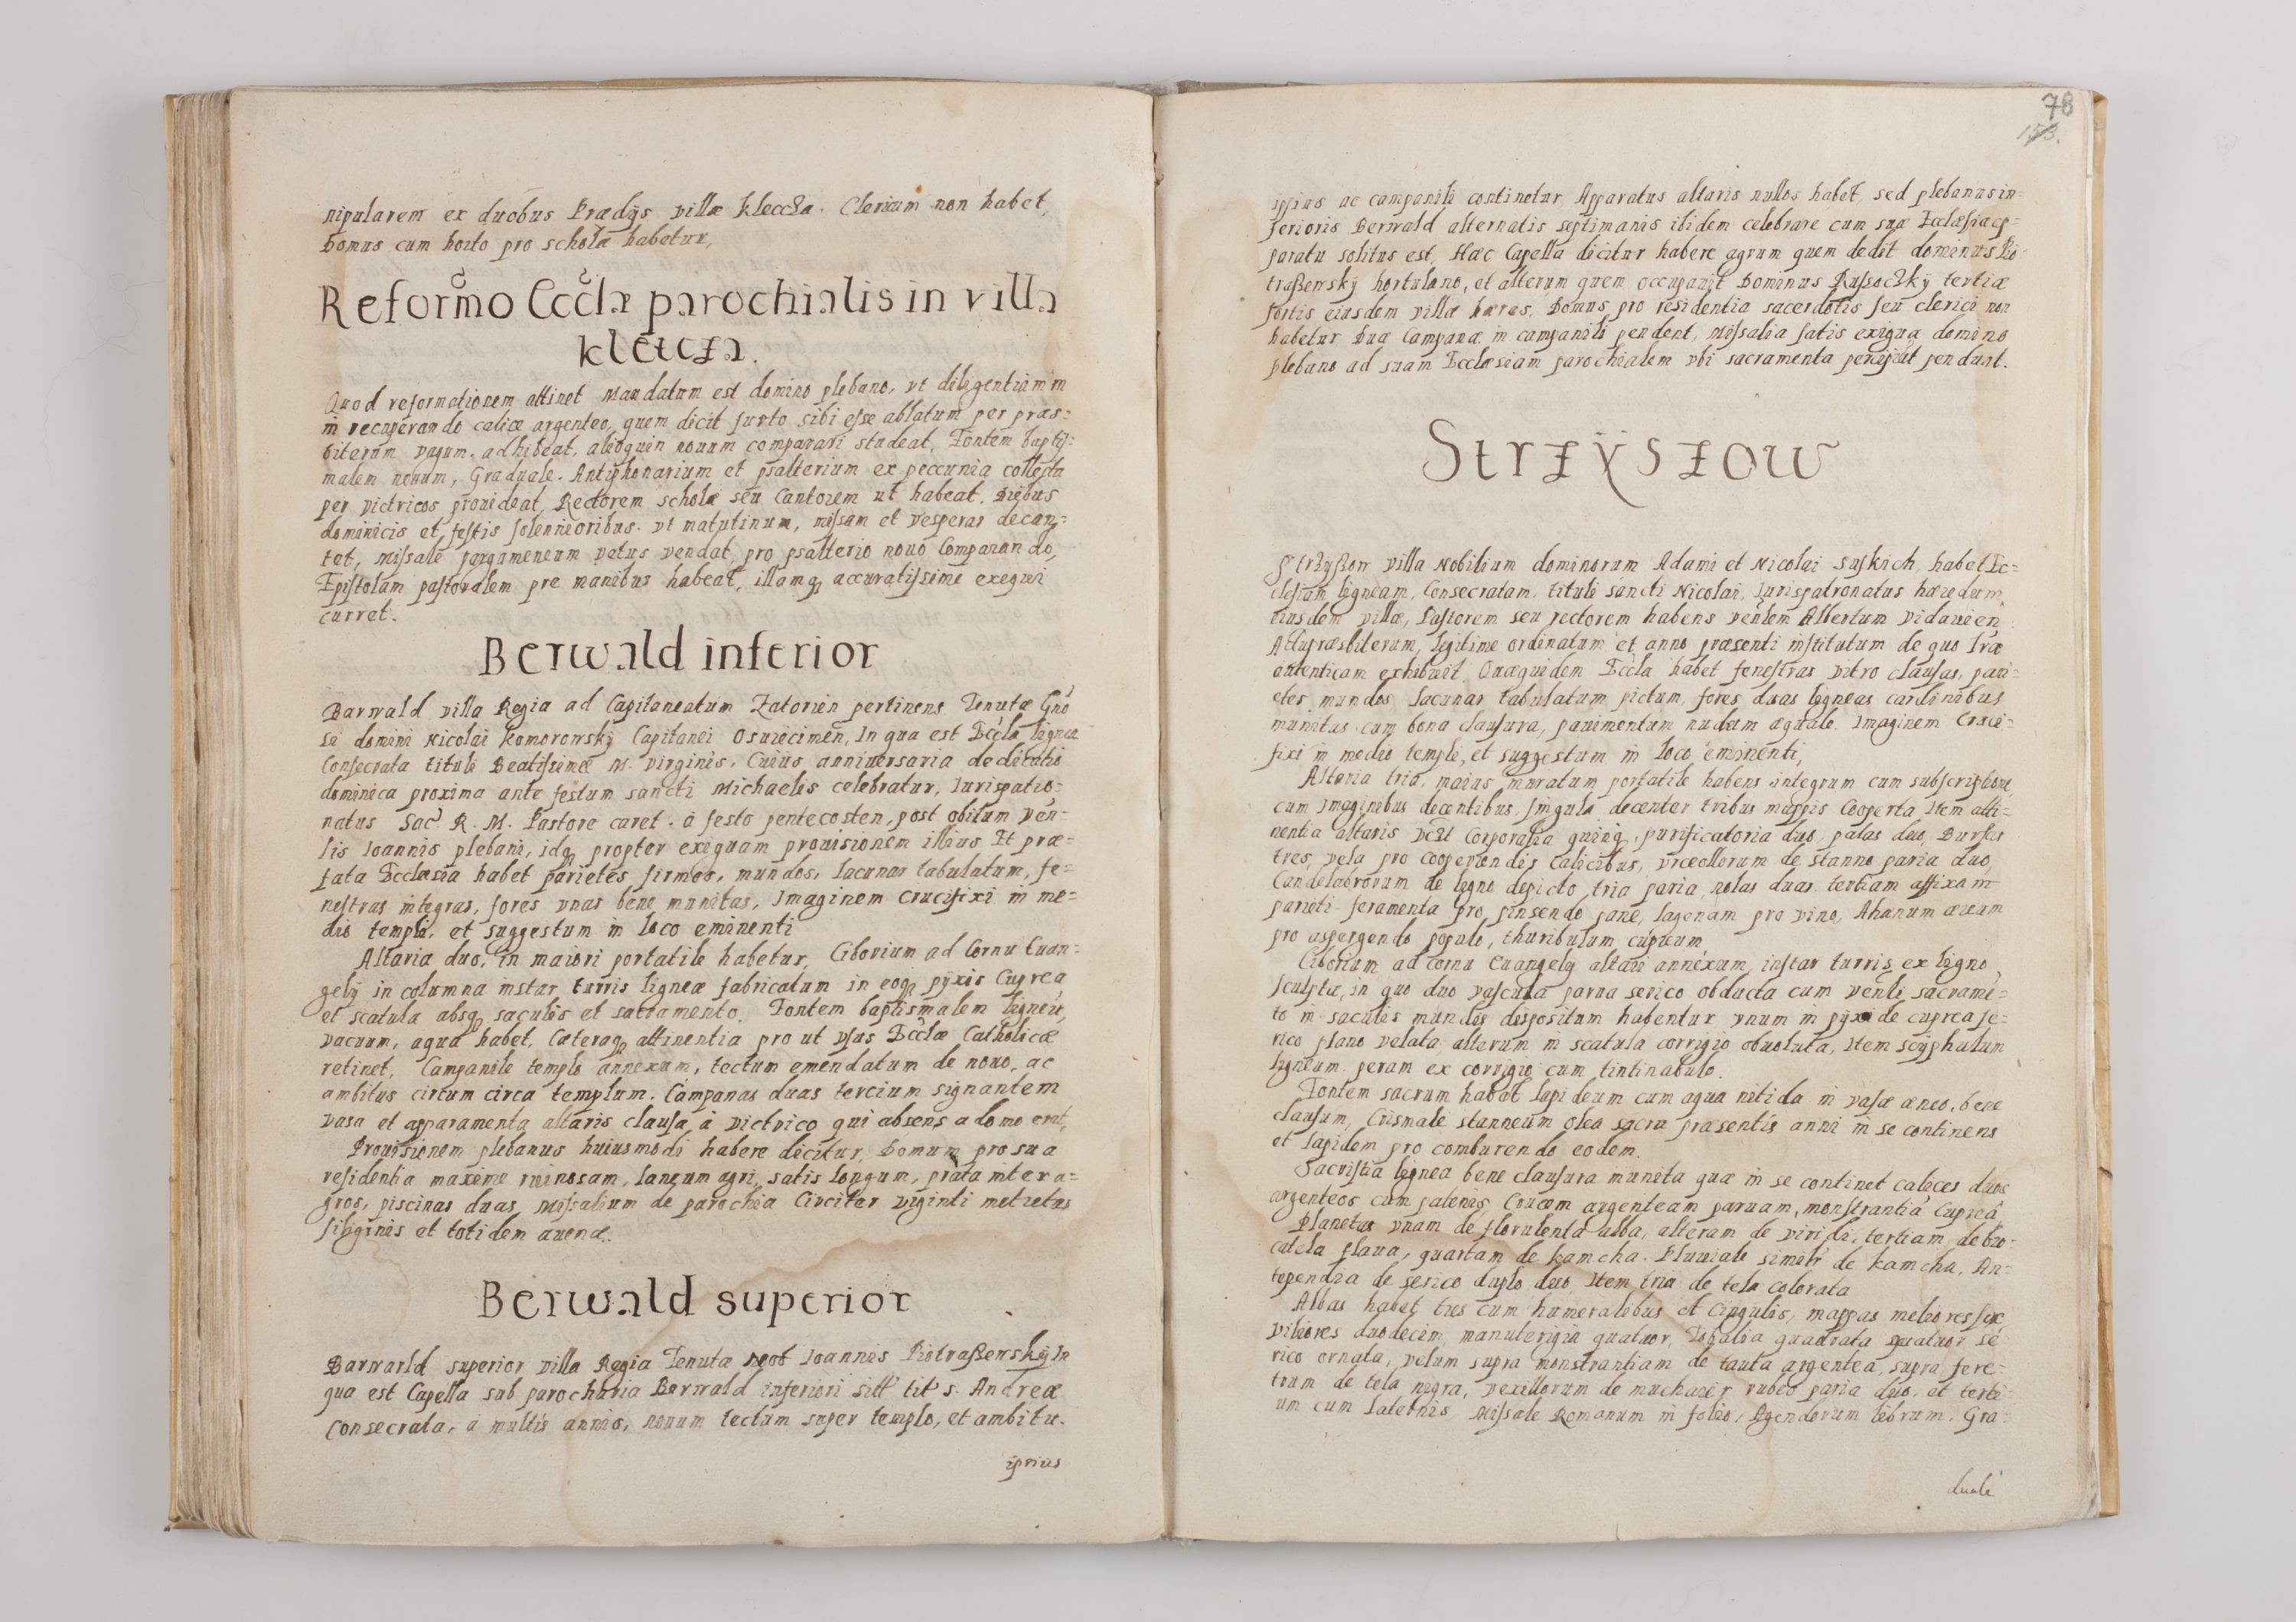 nipularem ex duobus Prædijs villæ Klecza. Clericum non habet,
Domus cum horto pro schola habetur,
Reformō Eccĺæ parochialis in villa
klecza.
Quod reformationem attinet Mandatum est domino plebano, vt diligentiam in
in recuperando calice argenteo, quem dicit furto sibi esse ablatum per præs=
biterum vagum. adhibeat, alioquin nouum comparari studeat, Fontem baptis=
malem nouum, Graduale. Antiphonarium et psalterium ex peccunia collecta
per victricos prouideat, Rectorem scholæ seu Cantorem ut habeat. Diebus
dominicis et festis solennioribus. vt matutinum, missam et vesperas decan=
tet, Missale pargameneum vetus vendat pro psalterio nouo Comparando,
Epistolam pastoralem pre manibus habeat, illamq accuratissime exequi
curret.
Berwald inferior
Barwald villa Regia ad Capitaneatum Zatorien pertinens Tenutæ Gno
si domini Nicolai Komorowskÿ Capitanei Osuiecimen, In qua est Eccla lignea
Consecrata tituli Beatissimæ M. virginis. Cuius anniuersaria dedicatio
dominica proxima ante festum sancti Michaelis celebratur, Iurispatro=
natus Sac. R. M. Pastore caret. a festo pentecosten, post obitum Ven=
lis Ioannis plebani, idq propter exiguam prouisionem illius Et præ=
fata Ecclæsia habet parietes firmos, mundos, lacunar tabulatum, fe=
nestras integras, fores vnas bene munitas, Imaginem crucifixi in me=
dio templi, et suggestum in loco eminenti
Altaria duo, in maiori portatile habetur, Ciborium ad Cornu Euan=
gelij in columna instar turris ligneæ fabricatum in eoq pÿxis Cuprea
et scatula absq saculis et sacramento. Fontem baptismalem ligneū,
vacuum, aqua habet, Cæteraq attinentia pro ut vsus Ecclæ Catholicæ
retinet, Campanile templo annexum, tectum emendatum de nouo, ac
ambitus circum circa templum. Campanas duas tercium signantem
vasa et apparamenta altaris clausa à victrico qui absens a domo erat,
Prouisionem plebanus huiusmodi habere dicitur, Domum pro sua
residentia maxime ruinosam, laneum agri, satis longum, prata inter a=
gros, piscinas duas, Missalium de parochia Circiter viginti metretas
siliginis et totidem auenæ.
Berwald superior
Barwald superior villa Regia Tenuta Ioannis Piotraßewskÿ In
qua est Capella sub parochia Berwald inferiori tit s. Andreæ
Consecrata, à multis annis, nouum tectum super templo, et ambitu.
ipsius
78
153.
ipsius ac campanili continetur. Apparatus altaris nullos habet, sed plebanus in=
ferioris Berwald alternatis septimanis ibidem celebrare cum suæ Ecclæsiæ ap=
paratu solitus est, Hæc Capella dicitur habere agrum quem dedit dominus Pio=
traßewskÿ hortulano, et alterum quem occupauit Dominus Russoczkÿ tertiæ
sortis eiusdem villæ hæres, Domus pro residentia sacerdotis seu clerici non
habetur Duæ Campanæ in campanili pendent, Missalia satis exigua domino
plebano ad suam Ecclæsiam parochialem vbi sacramenta percipiūt pendunt.
Strzÿszow
Strzÿszow villa Nobilium dominorum Adami et Nicolai Suskich, habet Ec=
clesiam ligneam, Consecratam, tituli sancti Nicolai, Iurispatronatus hæredum
eiusdem villæ, Pastorem seu rectorem habens venlem Albertum Vidauien
Actu præsbiterum, legitime ordinatum et anno præsenti institutum de quo lræ
autenticam exhibuit. Quæquidem Eccla habet fenestras vitro clausas, pari=
etes mundos lacunar tabulatum pictum, fores duas ligneas cardinibus
munitas cum bona clausura, pauimentum nudum æquale. Imaginem Cruci=
fixi in medio templi, et suggestum in loco eminenti,
Altaria tria, maius muratum portatile habens integrum cum subscriptione
cum Imaginibus decentibus, singula decenter tribus mappis Cooperta Item atti=
nentia altaris Corporalia quinq, purificatoria duo palas duo, Bursas
tres, vela pro cooperiendis calicibus, vrceollorum de stanno paria duo,
Candelabrorum de ligno depicto tria paria, nolas duas tertiam affixam
parieti feramenta pro pinsendo pane, lagenam pro vino, Ahænum æream
pro aspergendo populo, thuribulum cupreum
Ciborium ad cornu Euangelij altari annexum, instar turris ex ligno
sculptæ, in quo duo vascula parua serico obducta cum venli sacramē=
to in saculis mundis dispositum habentur vnum in pÿxide cuprea se=
rico plano velata, alterum in scatula corrigio obuoluta, Item scÿphulum
ligneum. peram ex corrigio cum tintinabulo.
Fontem sacrum habet lapideum cum aqua nitida in vase æneo, bene
clausum, Crismale stanneum olea sacra præsentis anni in se continens
et lapidem pro comburendo eodem.
Sacristia lignea bene clausura munita quæ in se continet calices duos
argenteos cum patenis, Crucem argenteam paruam, monstrantiā Cupreā
Planetas vnam de florulenta alba, alteram de viridi, tertiam de bro=
catela flaua, quartam de kamcha. Pluuiale simitr de kamcha, An=
tependia de serico duplo duo Item tria de tela colorata
Albas habet tres cum humeralibus et Cingulis, mappas meliores sex
viliores duodecim, manutergia quatuor, Tobalia quadrata quatuor se=
rico ornata, velum supra monstrantiam de tauta argentea, supra fere=
trum de tela nigra, vexillorum de muchaier rubeo paria duo, et terti=
um cum laternis, Missale Romanum in folio, Agendorum librum. Gra=
duale